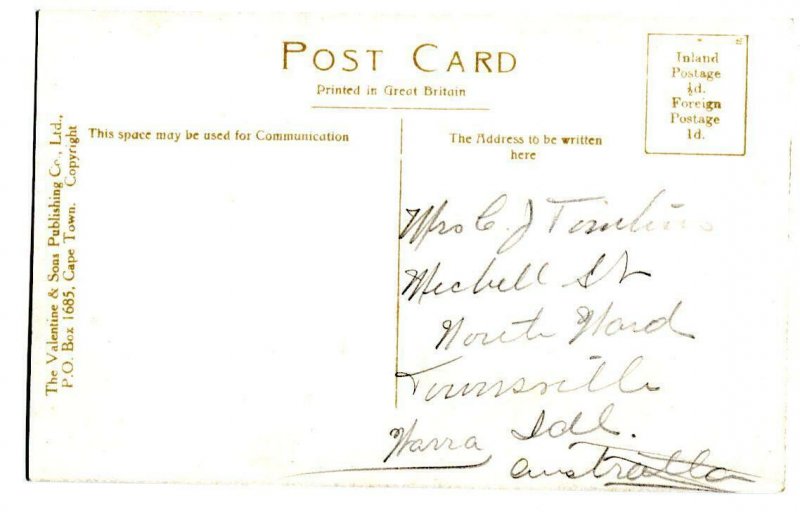 POST CARD
Printed in Great Britain
Inland
Postage
½d.
Foreign
Postage
1d.
This space may be used for Communication
The Address to be written
here
The Valentine & Sons Publishing Co., Ltd.,
P.O. Box 1685, Cape Town. Copyright
Mrs C. J
Mechell St
North Ward
Townsville
Warra
Australia